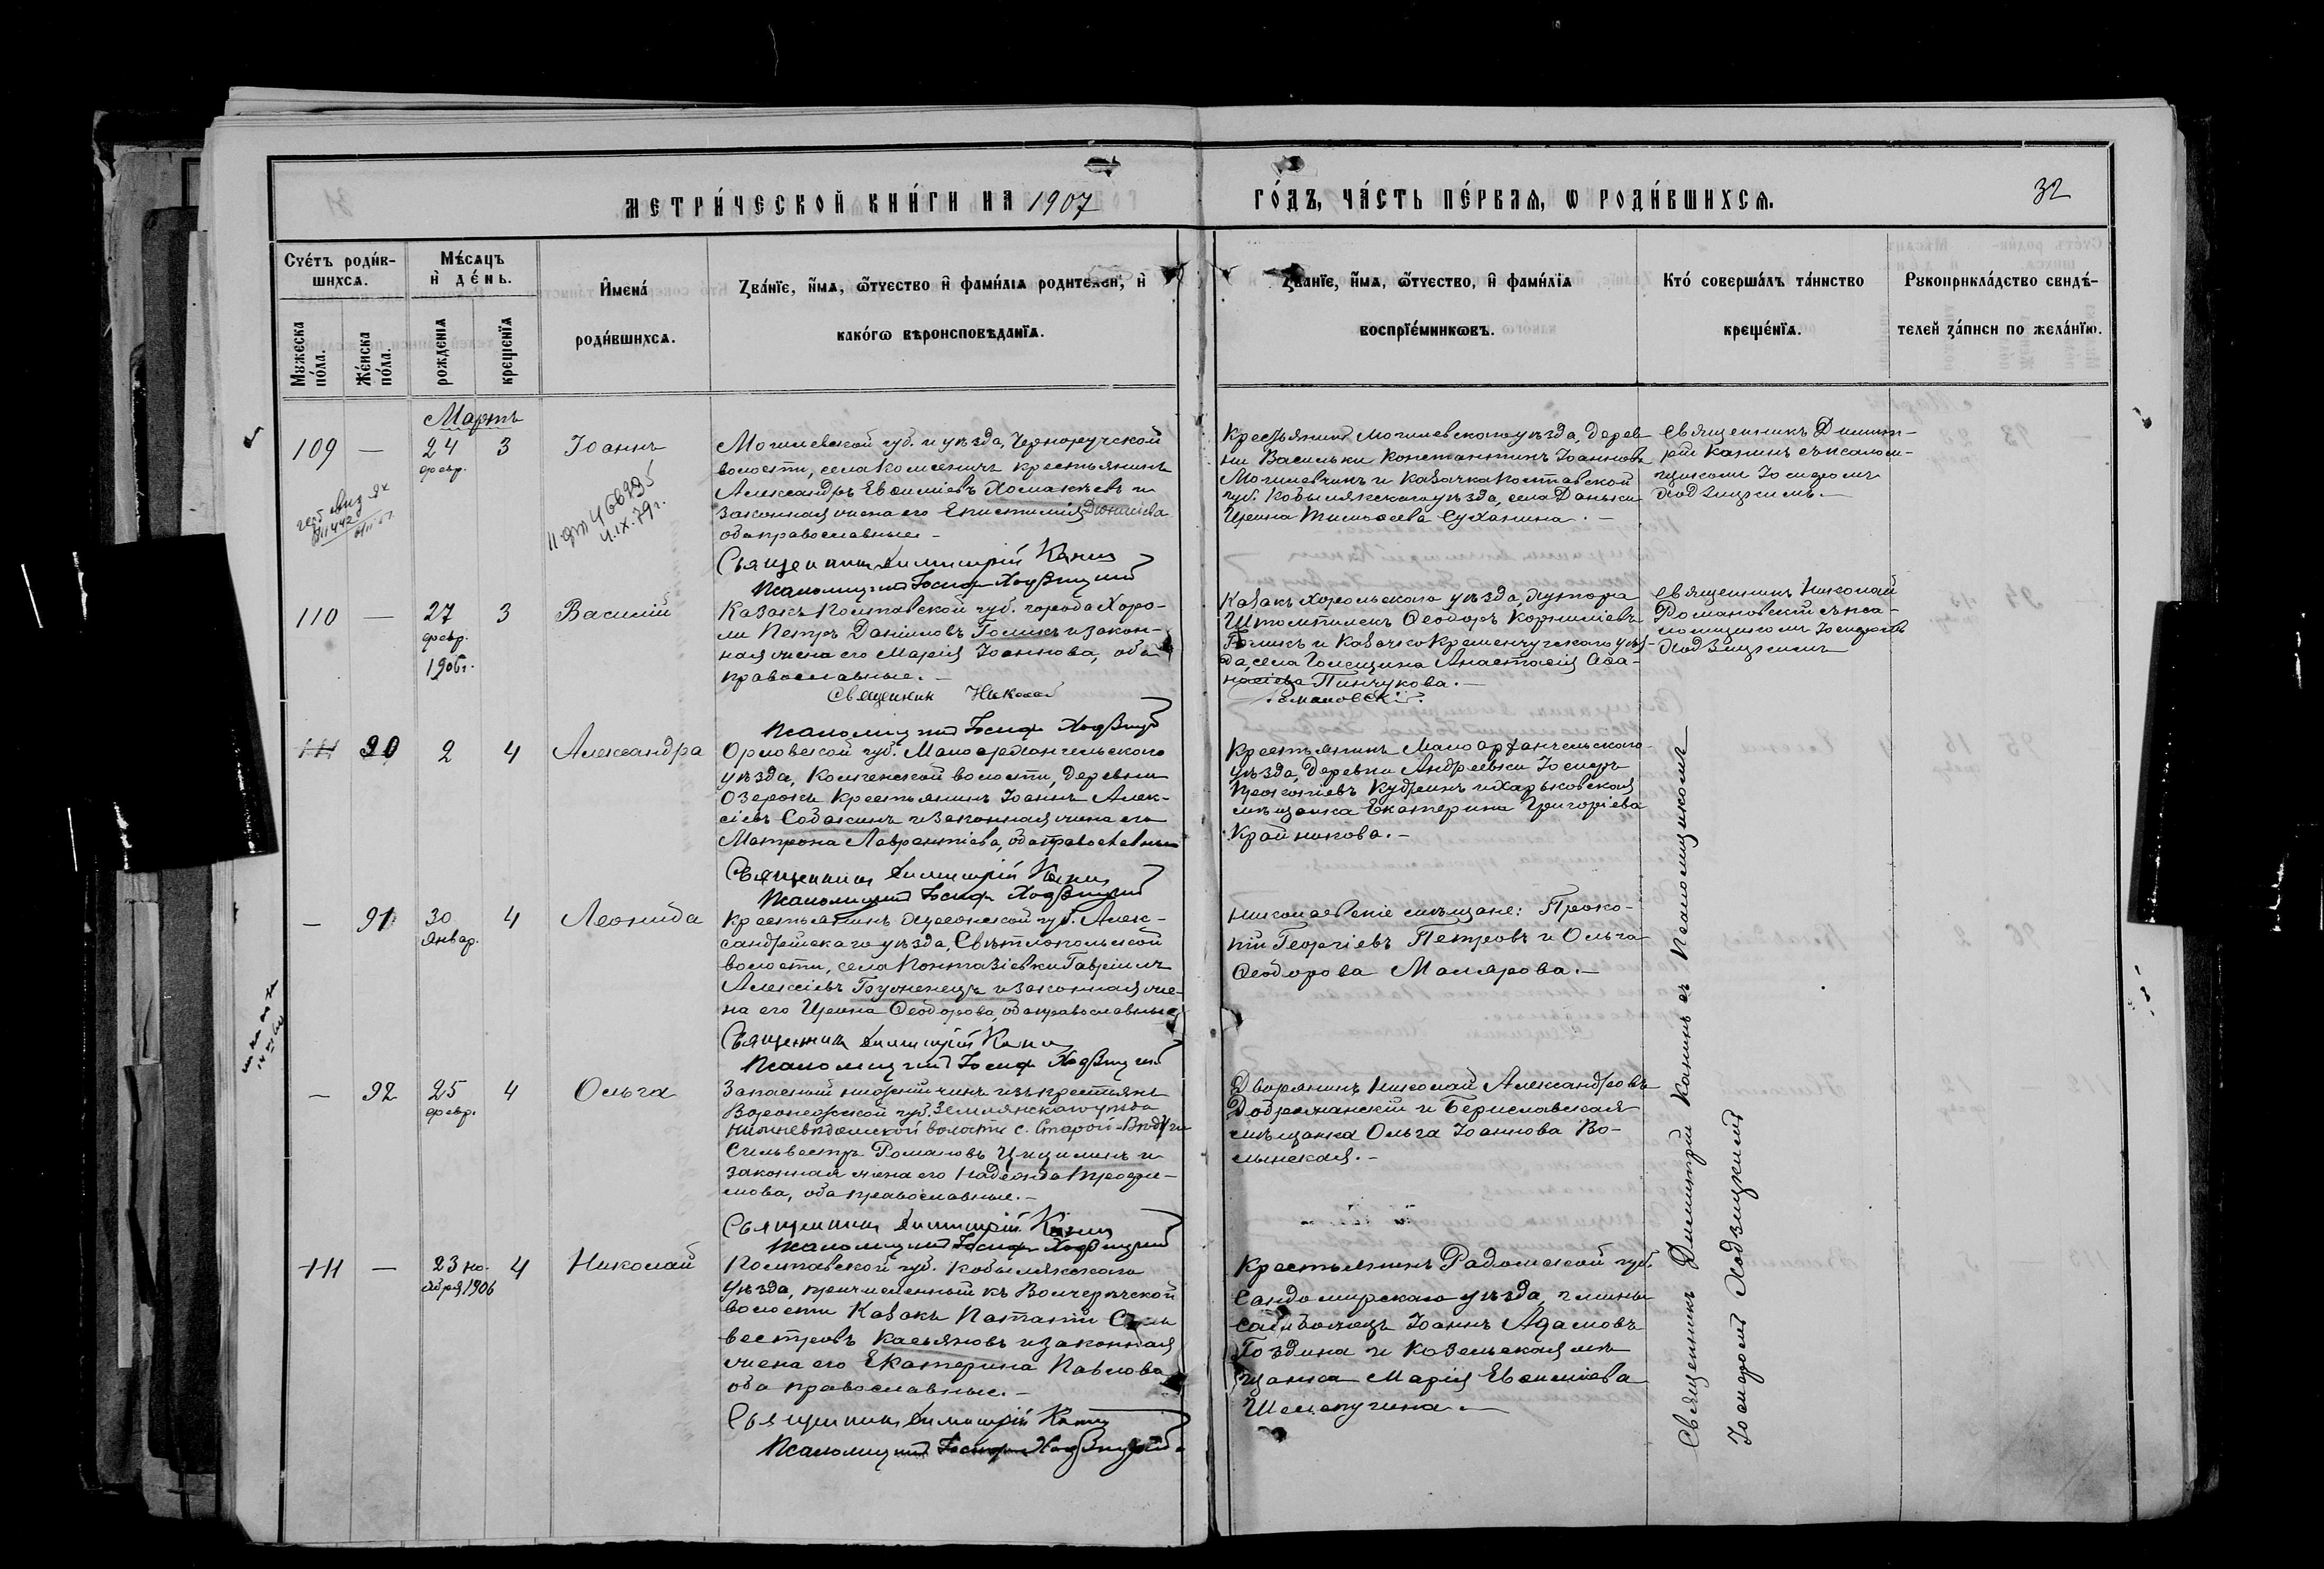 МЕТРИ́ЧЕСКОЙ КНИ́ГИ НА 1907
ГО́ДЪ, ЧА́СТЬ ПЕ́РВАѦ, Ѡ РОДИ́ВШИХСѦ.
32
Счéтъ роди́в-
шихсѧ.
Мꙋжеска по́ла.
Же́нска по́ла.
Мѣ́сѧцъ
и҆ де́нь.
рожденїѧ
крещенїѧ
И҆мена́
роди́вшихсѧ.
Зва́нїе, и҆́мѧ, ѻ҆́тчество и҆ фами́лїѧ родителей, и҆
како́гѡ вѣроисповѣданїѧ.
Зва́нїе, и҆́мѧ, ѻ҆́тчество, и҆ фами́лїѧ
воспрїе́мникѡвъ.
Кто́ соверша́лъ та́инство
креще́нїѧ.
Рꙋкоприкла́дство свидѣ́-
телей за́писи по жела́нїю.
Мартъ
109
—
24
февр.
3
Іоаннъ
Могилевской губ. и уѣзда, Черноручской
волости, села Комсеничъ крестьянинъ
Александръ Евѳиміевъ Хомакѣевъ и
законная жена его Епистимія Діонисіева
оба православные. –
Священникъ Димитрій Канинъ
Псаломщикъ Іосифъ Ходзицкій
Крестьянинъ Могилевскаго уѣзда, дерев
ни Васильки Константинъ Іоанновъ
Могилевчикъ и казачка Полтавской
губ. Кобылякскаго уѣзда, села Даньки
Ирина Тимоѳеева Суханина. –
Священникъ Димит-
рій Канинъ съ псалом-
щикомъ Іосифомъ
Ходзицкимъ. –
4.IX.79г.
110
—
27
февр.
1906г.
3
Василій
Казакъ Полтавской губ. города Хоро-
ли Петръ Даніиловъ Голикъ и закон-
ная жена его Марія Іоаннова, оба
православные. –
Священник Николай
Романовскій.
Псаломщикъ Іосифъ Ходзицкій
Казакъ Хорольскаго уѣзда, хутора
Штомпилекъ Ѳеодоръ Корниліевъ
Голикъ и казачка Кременчугскаго уѣз-
да, села Голещина Анастасія Аѳа-
насіева Пинчукова. –
Священникъ Николай
Романовскій съ пса-
ломщикомъ Іосифомъ
Ходзицкимъ
111
90
2
4
Александра
Орловской губ. Малоархангельскаго
уѣзда, Комченской волости, деревни
Озерокъ крестьянинъ Іоаннъ Алек-
сіевъ Собакинъ и законная жена его
Матрона Лаврентіева, оба православные
Священникъ Димитрій Канинъ
Псаломщикъ Іосифъ Ходзицкій
Крестьянинъ Малоархангельскаго
уѣзда, деревни Андреевки Іосифъ
Прокопіевъ Кудринъ и Харьковская
мѣщанка Екатерина Григоріева
Крайникова. –
—
91
30
Январ.
4
Леонида
Крестьянинъ Херсонской губ. Алек-
сандрійскаго уѣзда, Свѣтлопольской
волости, села Понтазіевки Гавріилъ
Алексіевъ Бузненецъ и законная же-
на его Ирина Ѳеодорова, оба православные
Священникъ Димитрій Канинъ
Псаломщикъ Іосифъ Ходзицкій
Николаевскіе мѣщане: Проко-
пій Георгіевъ Петровъ и Ольга
Ѳеодорова Малярова. –
—
92
25
февр.
4
Ольга
Запасной нижній чинъ изъ крестьянъ
Воронежской губ. Землянскаго уѣзда
Нижневѣдомской волости с. Старой-Вѣдуги
Сильвестръ Романовъ Цицилинъ и
законная жена его Надежда Трофи-
мова, оба православные. –
Священникъ Димитрій Канинъ
Псаломщикъ Іосифъ Ходзицкій
Дворянинъ Николай Александровъ
Доброжанскій и Бериславская
мѣщанка Ольга Іоаннова Во-
лынская. –
111
—
23 но-
ября 1906
4
Николай
Полтавской губ. Кобылякскаго
уѣзда, причисленный къ Волчерѣчской
волости казакъ Потапій Силь
вестровъ Касьяновъ и законная
жена его Екатерина Павлова
оба православные. –
Священникъ Димитрій Канинъ
Псаломщикъ Іосифъ Ходзицкій
Крестьянинъ Радомской губ.
Сандомирскаго уѣзда, гмины
Самборжецъ Іоаннъ Адамовъ
Гоздина и Козельская мѣ
щанка Марія Евѳиміева
Шелепугина. –
Священникъ Димитрій Канинъ съ псаломщикомъ
Іосифомъ Ходзицкимъ